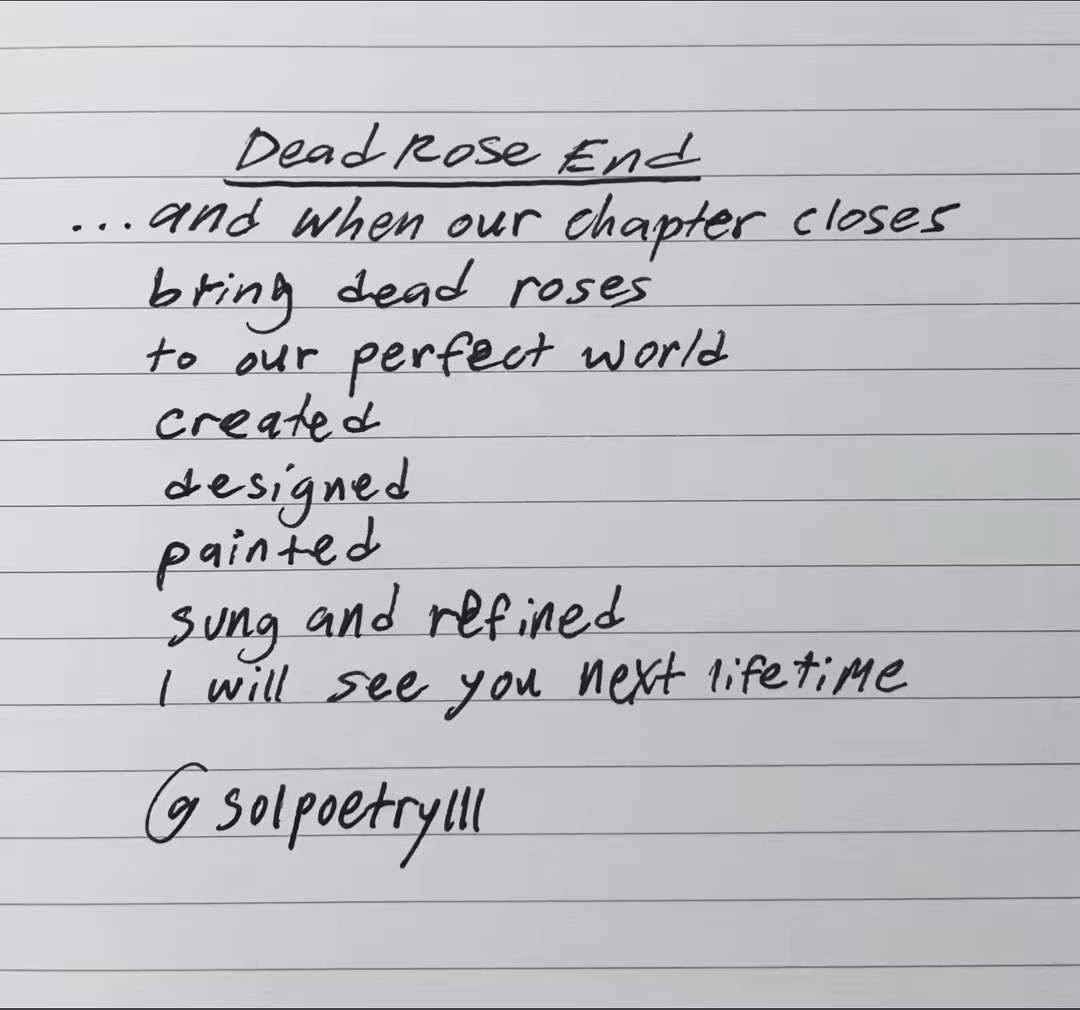 Dead Rose End
...and when our chapter closes
bring dead roses
to our perfect world
created
designed
painted
sung and refined
I will see you next lifetime
@solpoetrylll